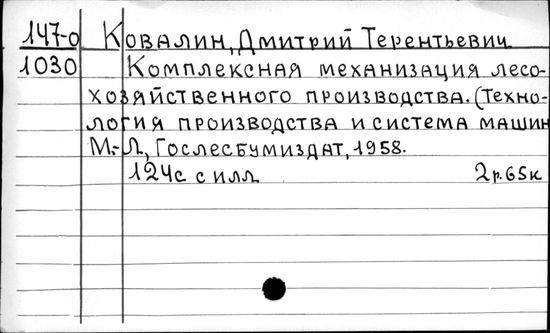 147-о Ковалин, Дмитрий Терентьевич
1030 Комплексная механизация лесо-
хозяйственного производства. (Техно-
логия производства и система машин
М.-Л., Гослесбумиздат, 1958.
124с с илл 2р.65к